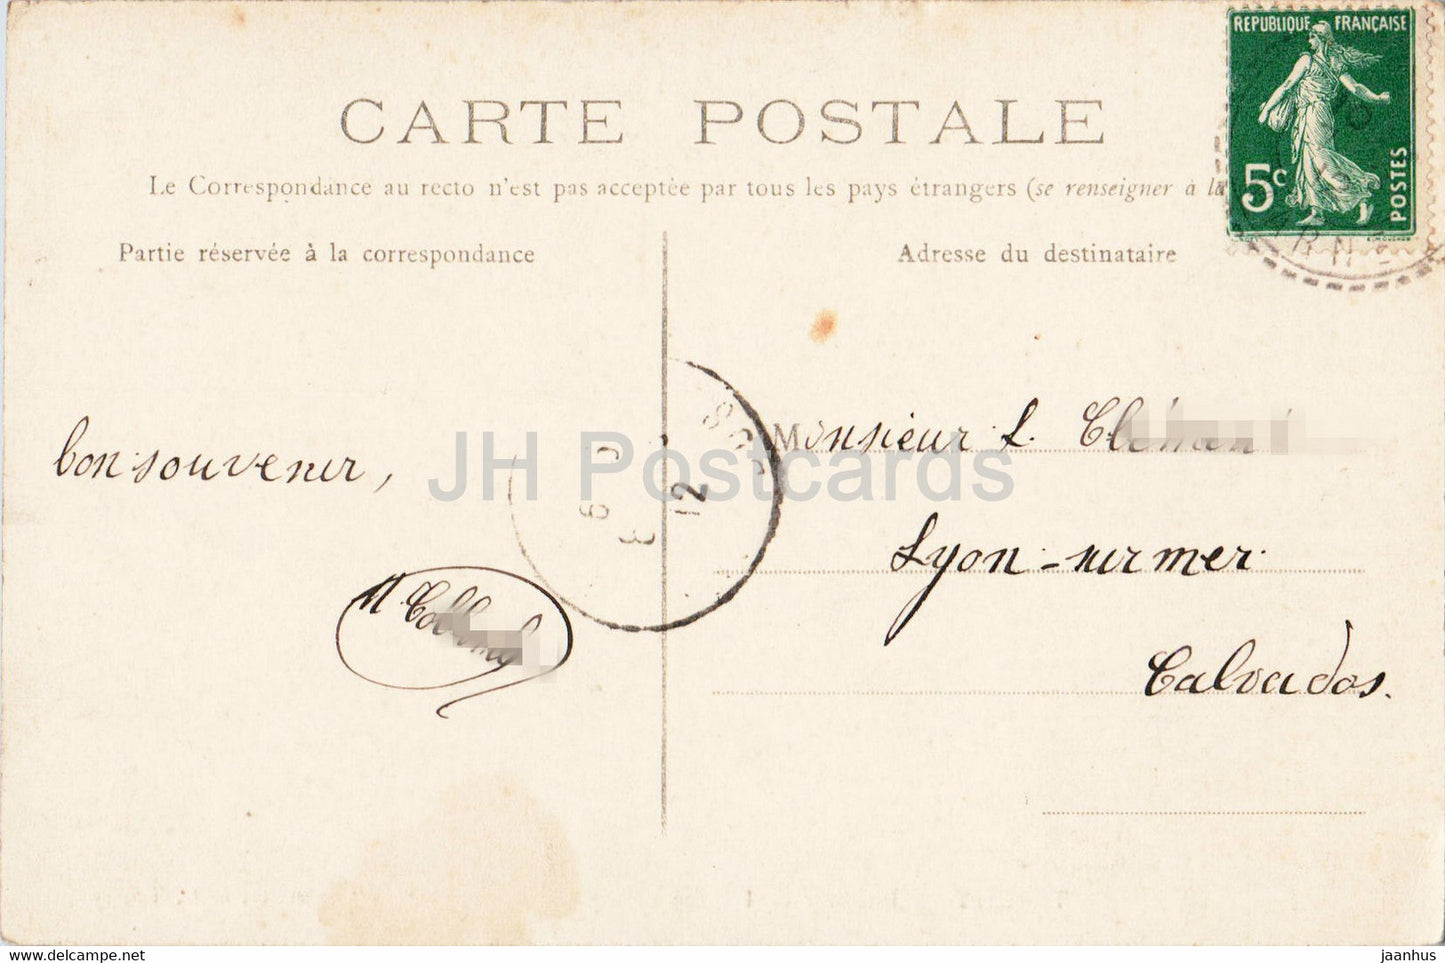 CARTE POSTALE
Le Correspondance au recto n'est pas acceptée par tous les pays étrangers (se renseigner à la
Partie réservée à la correspondance
Adresse du destinataire
REPUBLIQUE FRANÇAISE
5c
POSTES
E.MOUCHON
Monsieur L.
bon souvenir,
Lyon-sur mer
Calvados.
12
3
JH Postcards
www.delcampe.net
jaanhus